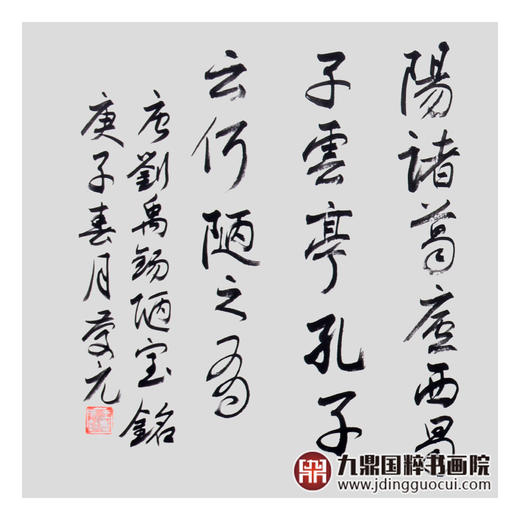 陽諸葛廬西蜀
子雲亭孔子
云何陋之有
唐劉禹錫陋室銘
庚子春月慶元
九鼎国粹书画院
www.jdingguocui.com